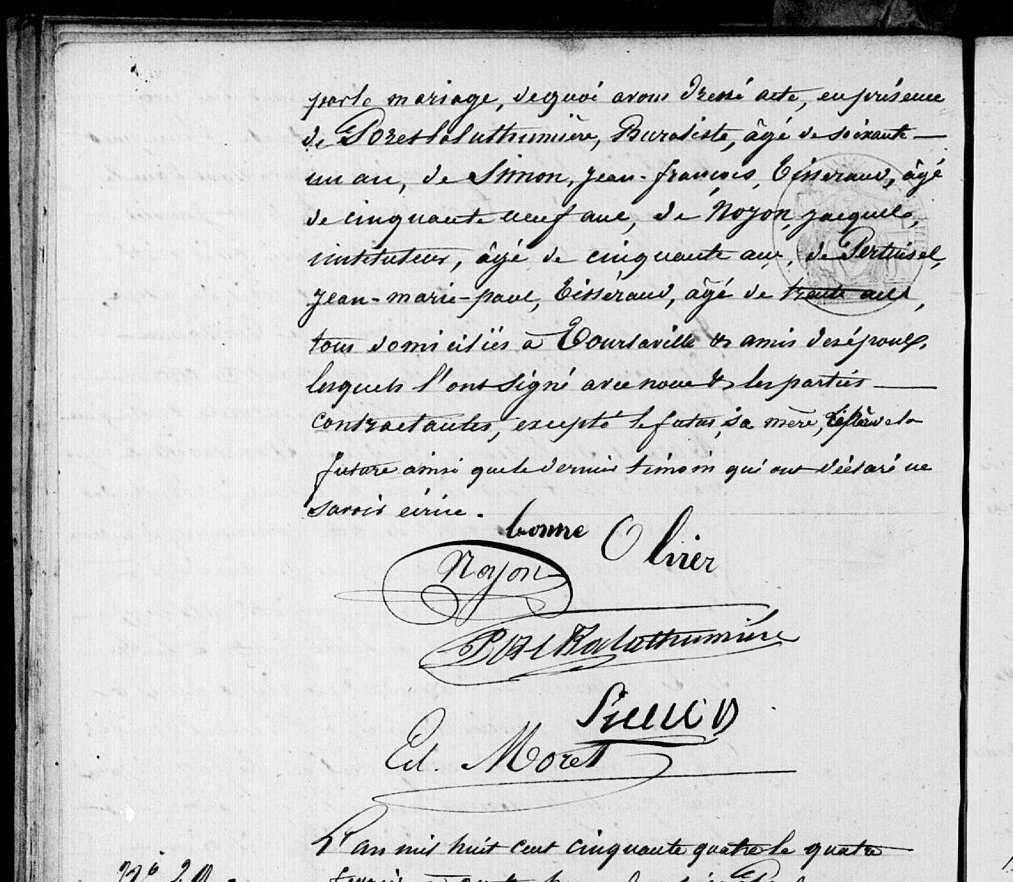 par le mariage, de quoi avons dressé acte, en présence
de Poret Lalathumière, Buraliste, âgé de soixante
un an, de Simon, Jean-françois, Tisserand, âgé
de cinquante neuf ans, de Noyon, jacques,
instituteur, âgé de cinquante ans, de Pertuisel,
jean-marie-paul, Tisserand, âgé de trente ans,
tous domiciliés à Tourlaville & amis des époux,
lesquels l'ont signé avec nous & les parties
contractantes, excepté le futur, sa mère, de la
future ainsi que le dernier témoin qui ont déclaré ne
savoir écrire.
bonne Olivier
Noyon
Poret Lalathumière
Simon
Ed. Moret
L'an mil huit cent cinquante quatre le quatre
Nº 20